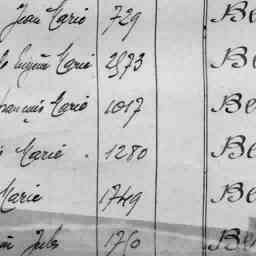 Jean Marie 729 Be
Eugène Marie 2573 Be
François Marie 1017 Be
Marie . 1280 Be
Marie 1749 Be
Jules 1750 Ber